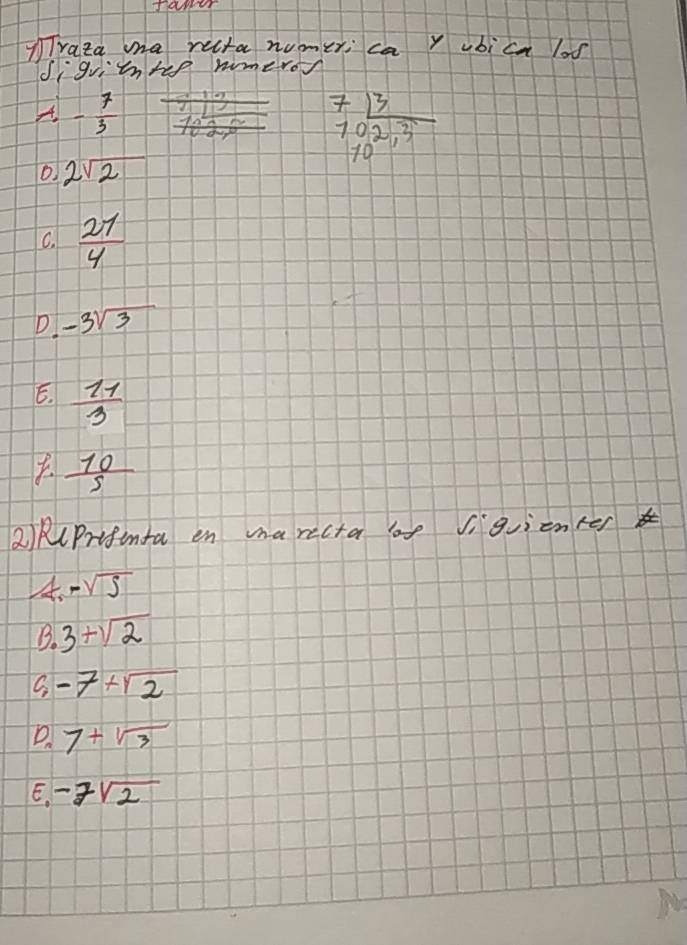 Taller
1) Traza una recta numerica y ubica los
siguientes numeros
A. -7/3 7 |3 10 2,3 10
B. 2√2
C. 21/4
D. -3√3
E. 11/3
F. 10/5
2) Representa en una recta los siguientes #
A. -√5
B. 3+√2
C. -7+√2
D. 7+√3
E. -7√2